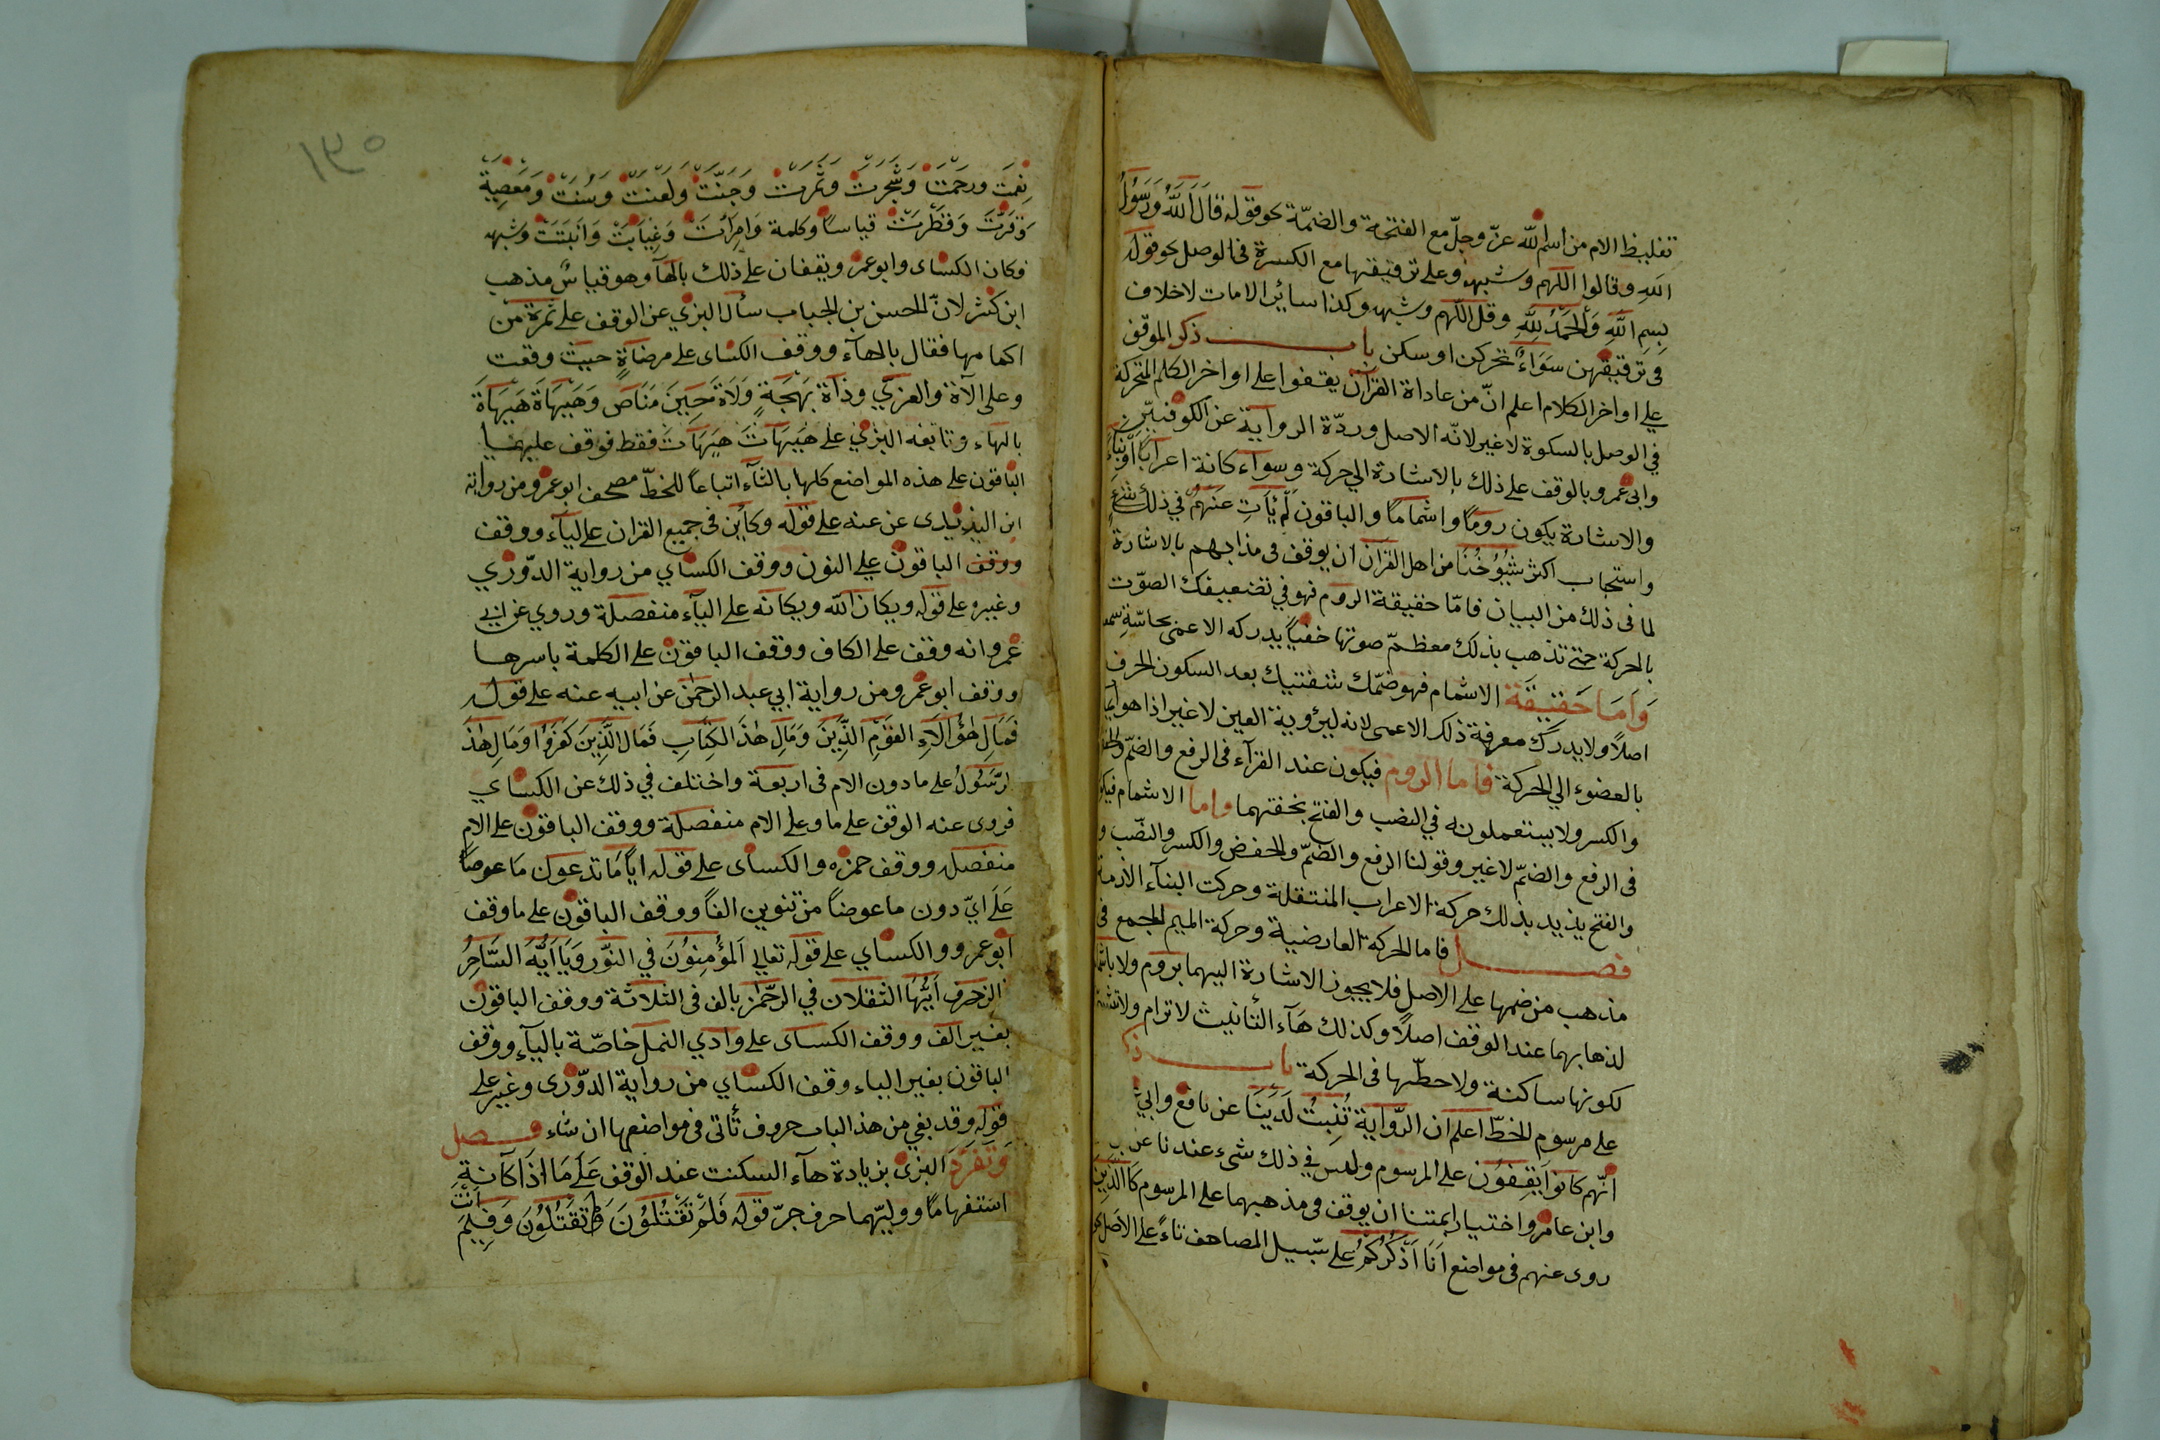 تغليظ الام من اسم الله عزّ وجلّ مع الفتحة والضمّة نحو قوله قَالَ اَللَّهُ وَرَسُولُ
اللهِ وقالوا اللّهم وشبهه وعلى ترقيقها مع الكسرة فى الوصل نحو قوله
بِسِمِ اللَّهِ وَالْحَمْدُ لِلَّهِ وقل اللّهم وشبهه وكذا سائر الامات لاخلاف
فى ترقيقهن سَوَاءٌ تحركن او سكن باب ذكر الموقف
على اواخر الكلام اعلم انّ من عاداة القرآن يقفوا على اواخر الكلم المتحركة
في الوصل بالسكوة لا غير لانّه الاصل وردّة الرواية عن الكوفيّين
وابى عمرو بالوقف على ذلك بالاشارة الى حركة وسواء كانة اعراباً او بناءً
والاشارة يكون روماً واشماماً والباقون لَمْ يَأتِ عَنْهُمْ في ذلك شئ
واستحباب اكثر شُيُوخُنَا من اهل القرآن ان يوقف فى مذاهبهم بالاشارة
لما فى ذلك من البيان فامّا حقيقة الروم فهو في تضعيفك الصوّت
بالحركة حتى تذهب بذلك معظمّ صوتها خفيّاً يدركه الاعمى بحاسّةِ سمعه
وَاَمَا حَقيقَة الاشمام فهو ضمّك شفتيك بعد السكون الحرف
اصلاً ولا يدرك معرفة ذلك الاعمى لانه ليرؤية العين لا غير اذا هو ايما
بالعضوء الى الحركة فاما الروم فيكون عند القرآء فى الرفع والضمّ والخفض
والكسر ولا يستعملونه في النصب والفتح بخفتهما واما الاشمام فيكون
فى الرفع والضمّ لا غير وقولنا الرفع والضمّ والخفض والكسر والنصّب و
والفتح يذيد بذلك حركة الاعراب المنتقلة وحركت البنآء الازمة
فصل فاما الحركة العارضية وحركة الميم الجمع فى
مذهب من ضمها على الاصل فلا يجوز الاشارة اليهما بروم ولا باشمام
لذهابهما عند الوقف اصلاً وكذلك هَآء التأنيث لا ترام ولا تشم
لكونها ساكنة ولاحظّها فى الحركة باب ذكر
على مرسوم الخطّ اعلم ان الرّواية تُثبِتُ لَدَيْنَا عن نافع وابي
انّهم كانوا يَقِفُون على المرسوم وليس في ذلك شىء عندنا عن
وابن عامر واختيار ايمتنا ان يوقف فى مذهبهما على المرسوم كَالَّذِينَ
روى عنهم فى مواضع اَنَا اَذْكُرُكُمْ على سّبيل المصاحف تاءً على الاصل نحو
١٣٥
نِعْمَت ورَحْمَتَ وَشَجَرَتَ وَثَمَرَتْ وَجَنّتْ ولَعْنَتْ وَسُنّتْ وَمَعْصِيَة
وَقُرّتَ وَفِطْرَتْ قياساً وكلمة وَامرَاَتَ وَغِيَابَتْ وَابْنَتَتْ وشبهه
فكان الكساى وابو عمرو ويقفان على ذلك بالهَآ وهو قياسٌ مذهب
ابن كثر لانّ الحسن بن الحباب سأل البزي عن الوقف على ثمرة من
اكمامها فقال بالهاَء ووقف الكساى على مرضاةٍ حيث وقعت
وعلى الآة والعزي وذاة بَهْجَةٍ وَلَاةَ حِينَ مَنَاص وَهَيْهَاةَ هَيْهَاةَ
بالهاء وتابعه البزي على هَيْهَاتَ هَيَهَاتَ فقط فوقف عليهما
الباقون على هذه المواضع كلها بالتَآء اتباعاً للخطّ مصحف ابو عمرو من رواية
ابن اليذيدى عن عنه على قوله وكأين فى جميع القران على اليَآء ووقف
ووقف الباقون على النون ووقف الكساي من رواية الدّوري
وغيره على قوله ويكان الله ويكانه على اليآء منفصلة وروي عن ابي
عمرو انه وقف على الكاف ووقف الباقون على الكلمة باسرها
ووقف ابو عمرو من رواية ابي عبد الرحمن عن ابيه عنه على قوله
فَمَالِ هٰؤُلَآءِ القَوْمِ الَّذِيْنَ وَمَالِ هٰذَ الكِتَابِ فَمَال الَّذِينَ كَفَرُوا وَمَالِ هٰذَ
ارَّسَوُلُ على ما دون الام فى اربعة واختلف في ذلك عن الكساي
فروى عنه الوقف على ما وعلى الام منفصلة ووقف الباقون على الام
منفصله ووقف حمزه والكساى على قوله ايّاً مَا تدعون مَا عوضاً
عَلَى ايّ دون ما عوضاً من تنوين الفاً ووقف الباقون على ما وقف
اَبو عمرو والكساي على قوله تعالى اَلمؤُمِنُونَ في النوّر وَيَا اَيُّهَ السَّاحِرُ
الزخرف اَيُّهَا الثقلان في الرحّمن بالف فى الثلاثة ووقف الباقون
بغير الف ووقف الكساى على وادي النمل خاصّة باليآء ووقف
الباقون بغير الياء وقف الكساي من رواية الدّورى وغير على
قوله وقد بقي من هذ الباب حروف تأتى فى مواضعها ان شاء فصل
وَتَفَرّدَ البزى بزيادة هآء السكنت عند الوقف عَلَى مَا اذَا كَانةِ
استفهامًا ووليّهما حرف جرّ قوله فَلِمَ تَقْتُلوُنَ تَقْتُلُونَ وَفِيمَ اَنْتَ